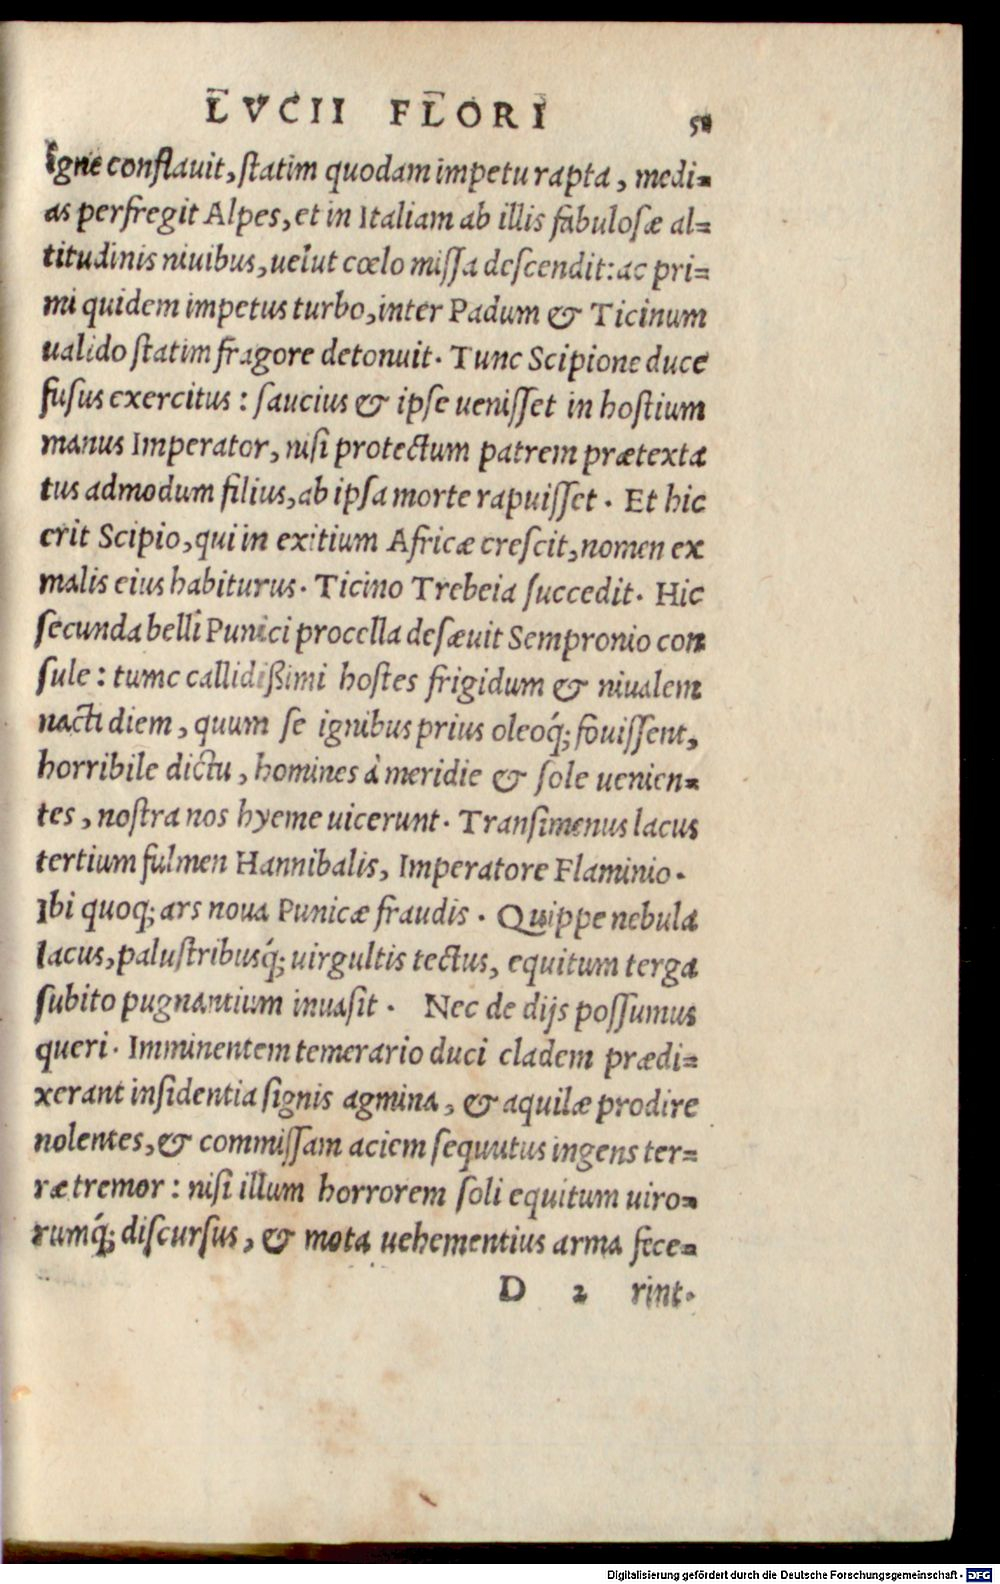 LVCII FLORI
igne conflauit, statim quodam impetu rapta, medi=
as perfregit Alpes, et in Italiam ab illis fabulosæ al=
titudinis niuibus, uelut cœlo missa descendit: ac pri=
mi quidem impetus turbo, inter Padum & Ticinum
ualido statim fragore detonuit. Tunc Scipione duce
fusus exercitus: saucius & ipse uenisset in hostium
manus Imperator, nisi protectum patrem prætexta
tus admodum filius, ab ipsa morte rapuisset. Et hic
erit Scipio, qui in exitium Africæ crescit, nomen ex
malis eius habiturus. Ticino Trebeia succedit. Hic
secunda belli Punici procella desæuit Sempronio con
sule: tumc callidißimi hostes frigidum & niualem
nacti diem, quum se ignibus prius oleoq́; fouissent,
horribile dictu, homines à meridie & sole uenien=
tes, nostra nos hyeme uicerunt. Transimenus lacus
tertium fulmen Hannibalis, Imperatore Flaminio.
Ibi quoq; ars noua Punicæ fraudis. Quippe nebula
lacus, palustribusq́; uirgultis tectus, equitum terga
subito pugnantium inuasit. Nec de dijs possumus
queri. Imminentem temerario duci cladem prædi=
xerant insidentia signis agmina, & aquilæ prodire
nolentes, & commissam aciem sequutus ingens ter=
ræ tremor: nisi illum horrorem soli equitum uiro=
rumq́; discursus, & mota uehementius arma fece=
D 2 rint.
Digitalisierung gefördert durch die Deutsche Forschungsgemeinschaft - DFG